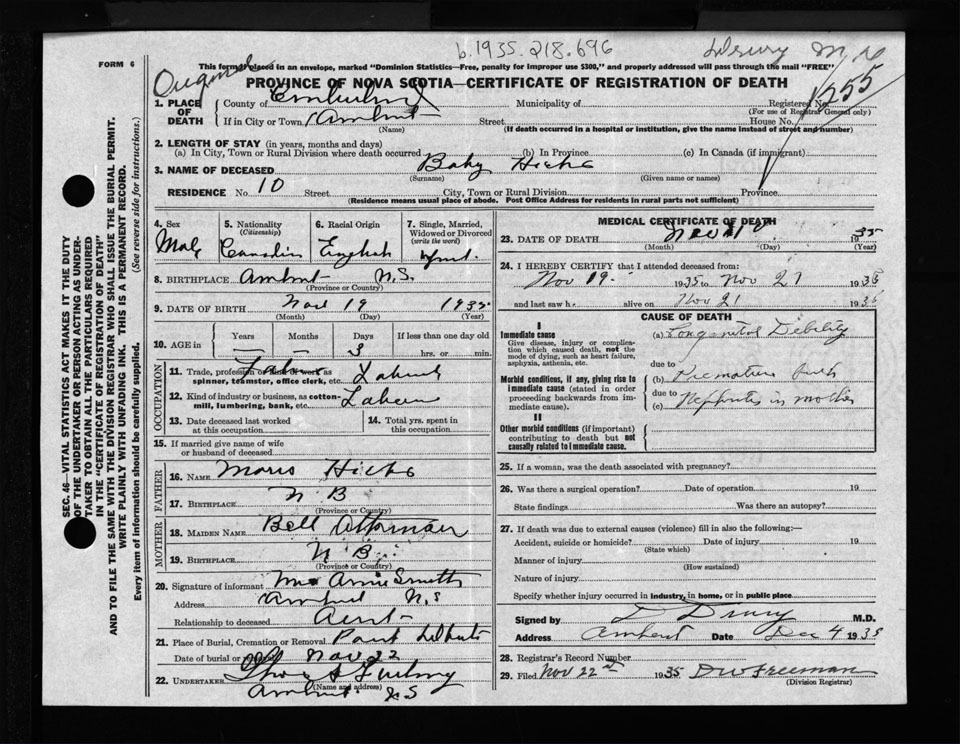 b.1935.218.696
Original
FORM 6
This form placed in an envelope, marked "Dominion Statistics—Free, penalty for improper use $300," and properly addressed will pass through the mail "FREE"
PROVINCE OF NOVA SCOTIA—CERTIFICATE OF REGISTRATION OF DEATH
1. PLACE OF DEATH
County of Cumberland Municipality of Registered No. 1255
(For use of Registrar General only)
If in City or Town Amherst Street House No.
(Name) (If death occurred in a hospital or institution, give the name instead of street and number)
2. LENGTH OF STAY (in years, months and days)
(a) In City, Town or Rural Division where death occurred (b) In Province (c) In Canada (if immigrant)
3. NAME OF DECEASED Baby Hicks
(Surname) (Given name or names)
RESIDENCE No. 10 Street City, Town or Rural Division Province
(Residence means usual place of abode. Post Office Address for residents in rural parts not sufficient)
4. Sex
Male
5. Nationality
(Citizenship)
Canadian
6. Racial Origin
English
7. Single, Married, Widowed or Divorced
(write the word)
8. BIRTHPLACE Amherst N.S.
(Province or Country)
9. DATE OF BIRTH Nov 19 1935
(Month) (Day) (Year)
10. AGE in
Years Months Days If less than one day old
3 hrs. or min.
OCCUPATION
11. Trade, profession or kind of work as
spinner, teamster, office clerk, etc.
12. Kind of industry or business, as cotton-
mill, lumbering, bank, etc.
13. Date deceased last worked
at this occupation
14. Total yrs. spent in
this occupation
15. If married give name of wife
or husband of deceased
FATHER
16. NAME Morris Hicks
17. BIRTHPLACE N B
(Province or Country)
MOTHER
18. MAIDEN NAME Bell
19. BIRTHPLACE N B
(Province or Country)
20. Signature of informant Mrs Annie Smith
Address Amherst N.S
Relationship to deceased Aunt
21. Place of Burial, Cremation or Removal
Date of burial or Nov 22
22. UNDERTAKER
(Name and address)
Amherst N S
MEDICAL CERTIFICATE OF DEATH
23. DATE OF DEATH Nov 1935
(Month) (Day) (Year)
24. I HEREBY CERTIFY that I attended deceased from:
Nov 19 1935 to Nov 21 1935
and last saw h. alive on Nov 21 1935
CAUSE OF DEATH
I
Immediate cause
Give disease, injury or complica-
tion which caused death, not the
mode of dying, such as heart failure,
asphyxia, asthenia, etc.
(a) Congenital Debility
due to
Morbid conditions, if any, giving rise to
immediate cause (stated in order
proceeding backwards from im-
mediate cause).
(b) Premature birth
due to
(c) Nephritis in mother
II
Other morbid conditions (if important)
contributing to death but not
causally related to immediate cause.
25. If a woman, was the death associated with pregnancy?
26. Was there a surgical operation? Date of operation 19
State findings Was there an autopsy?
27. If death was due to external causes (violence) fill in also the following:—
Accident, suicide or homicide? Date of injury 19
(State which)
Manner of injury
(How sustained)
Nature of injury
Specify whether injury occurred in industry, in home, or in public place
Signed by D Drury M.D.
Address Amherst Date Dec 4 1935
28. Registrar's Record Number
29. Filed Nov 22 1935 D W Freeman
(Division Registrar)
SEC. 46—VITAL STATISTICS ACT MAKES IT THE DUTY
OF THE UNDERTAKER OR PERSON ACTING AS UNDER-
TAKER TO OBTAIN ALL THE PARTICULARS REQUIRED
IN THE "CERTIFICATE OF REGISTRATION OF DEATH"
AND TO FILE THE SAME WITH THE DIVISION REGISTRAR WHO SHALL ISSUE THE BURIAL PERMIT.
WRITE PLAINLY WITH UNFADING INK. THIS IS A PERMANENT RECORD.
Every item of information should be carefully supplied. (See reverse side for instructions.)